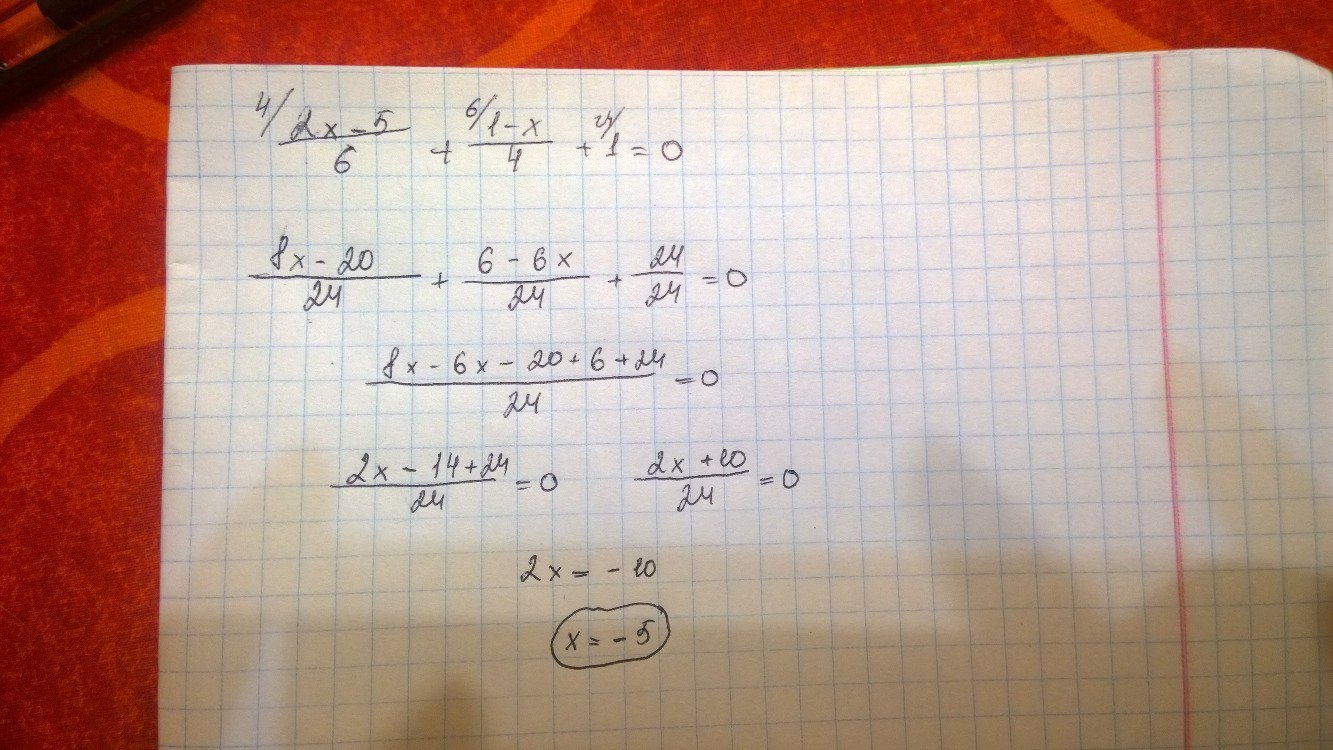 4/ (2x - 5)/6 + 6/ (1 - x)/4 + 24/ 1 = 0
(8x - 20)/24 + (6 - 6x)/24 + 24/24 = 0
(8x - 6x - 20 + 6 + 24)/24 = 0
(2x - 14 + 24)/24 = 0 (2x + 10)/24 = 0
2x = - 10
x = - 5